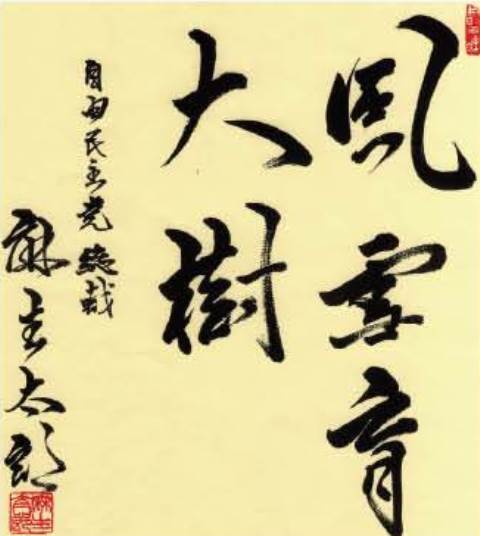 風雪育
大樹
自由民主党総裁
麻生太郎